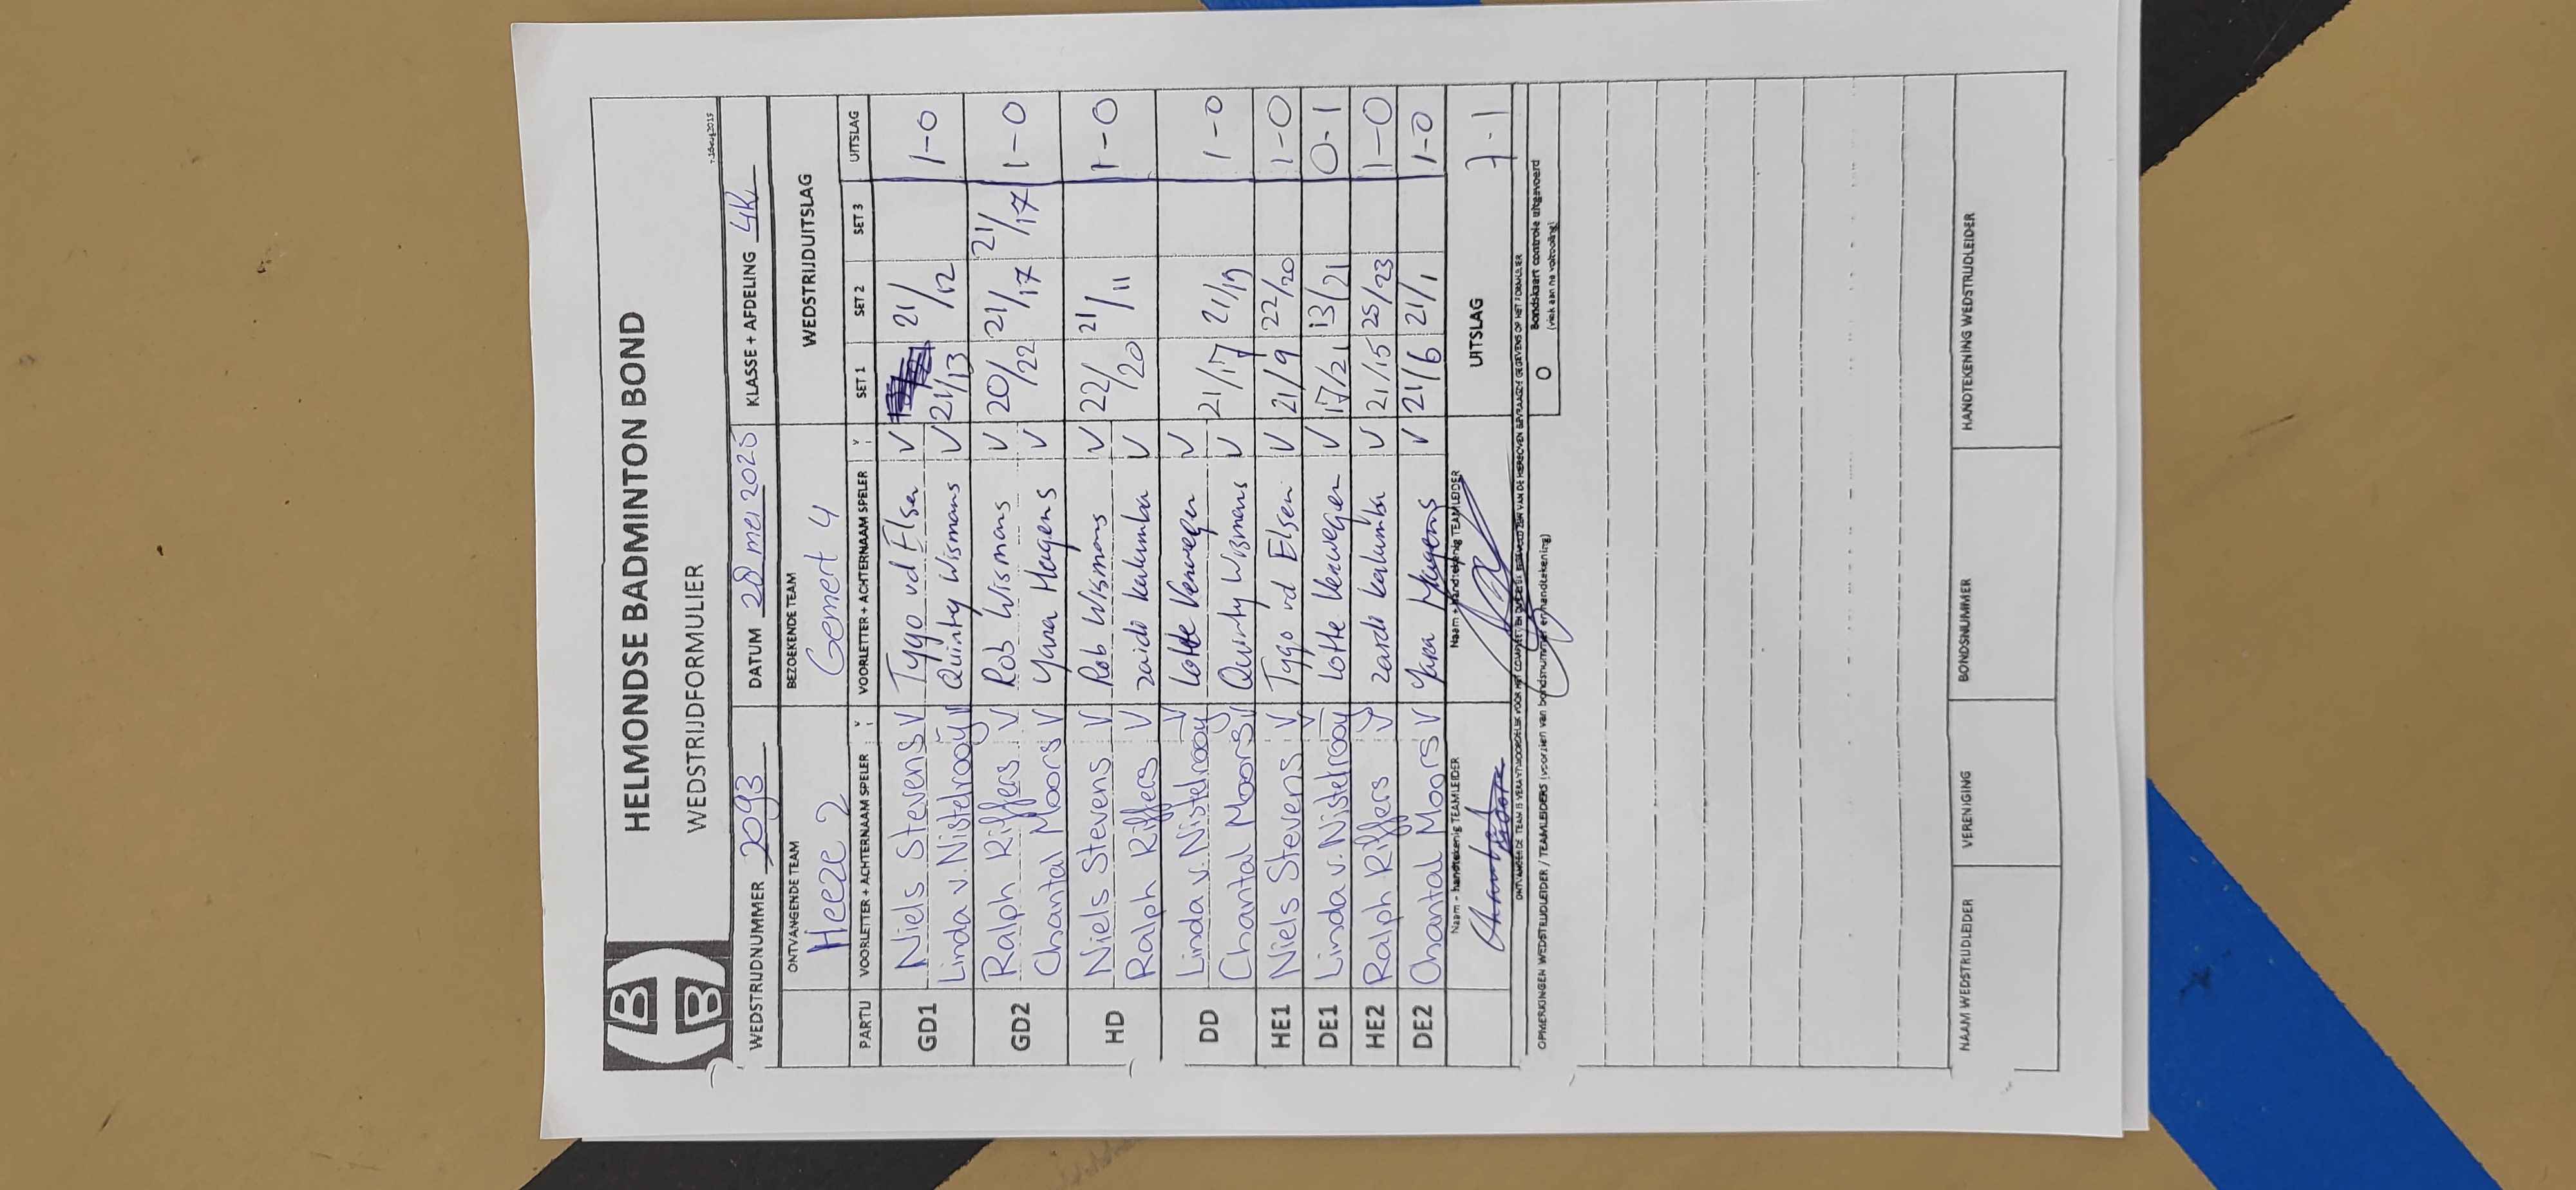 HELMONDSE BADMINTON BOND
WEDSTRIJDFORMULIER
WEDSTRIJDNUMMER 2093 DATUM 28 mei 2025 KLASSE + AFDELING 4K
ONTVANGENDE TEAM BEZOEKENDE TEAM WEDSTRIJDUITSLAG
Heeze 2 Gemert 4
PARTIJ VOORLETTER + ACHTERNAAM SPELER V VOORLETTER + ACHTERNAAM SPELER V SET 1 SET 2 SET 3 UITSLAG
GD1 Niels Stevens V Tygo vd Elsen V 21/13 21/12 1-0
Linda v. Nistelrooy V Quinty Wismans V
GD2 Ralph Riffers V Rob Wismans V 20/22 21/17 21/17 1-0
Chantal Moors V Yara Hagens V
HD Niels Stevens V Rob Wismans V 22/20 21/11 1-0
Ralph Riffers V zaidi kalumba V
DD Linda v. Nistelrooy V Lotte Verwegen V 21/17 21/19 1-0
Chantal Moors V Quinty Wismans V
HE1 Niels Stevens V Tygo vd Elsen V 21/9 22/20 1-0
DE1 Linda v. Nistelrooy V Lotte Verwegen V 17/21 13/21 0-1
HE2 Ralph Riffers V zaidi kalumba V 21/15 25/23 1-0
DE2 Chantal Moors V Yara Hagens V 21/6 21/1 1-0
Naam + handtekenig TEAMLEIDER Naam + handtekenig TEAMLEIDER UITSLAG 7-1
O Bondskaart controle uitgevoerd
(vink aan na voltooiing)
OPMERKINGEN WEDSTRIJDLEIDER / TEAMLEIDERS (voorzien van bondsnummer en handtekening)
NAAM WEDSTRIJDLEIDER VERENIGING BONDSNUMMER HANDTEKENING WEDSTRIJDLEIDER